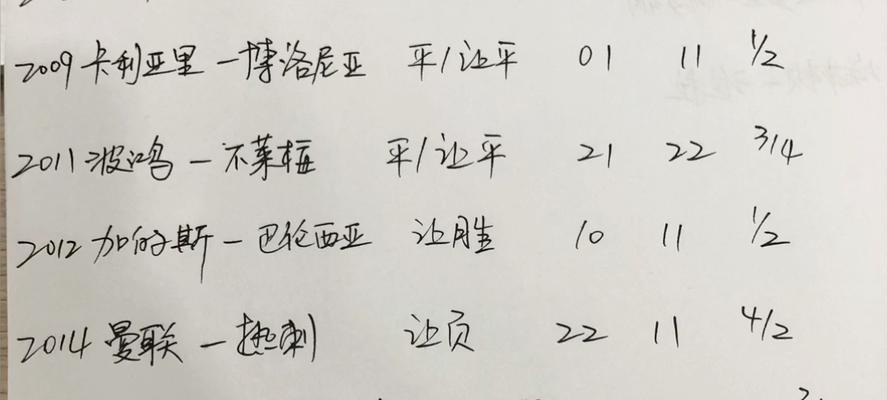 2009 卡利亚里 - 博洛尼亚 平/让平 01 11 1/2
2011 波鸿 - 不莱梅 平/让平 21 22 3/4
2012 加的斯 - 巴伦西亚 让胜 10 11 1/2
2014 曼联 - 热刺 让负 22 11 4/2